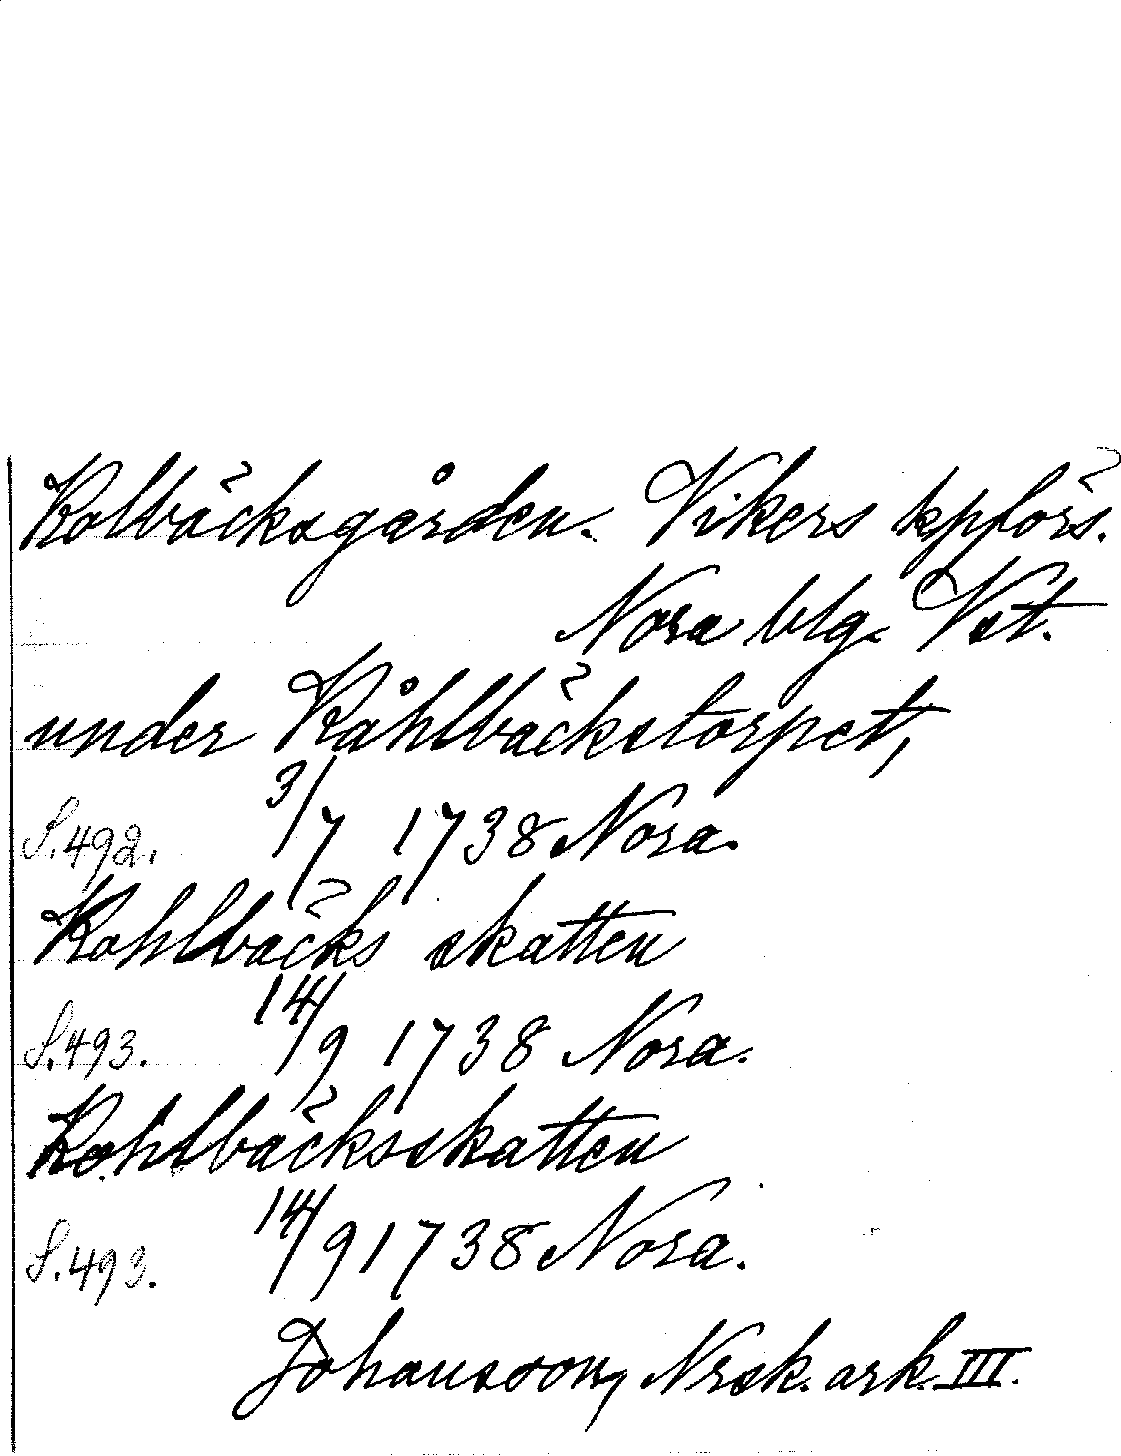 Kolbäcksgården. Vikers kpförs.
Nora blg. Vst.
under Kåhlbäckstorpet,
S.492. 3/7 1738 Nora.
Kohlbäcks skatten
S.493. 14/9 1738 Nora.
Kohlbäcksskatten
S.493. 14/9 1738 Nora.
Johansson, Nrsk. ark. III.